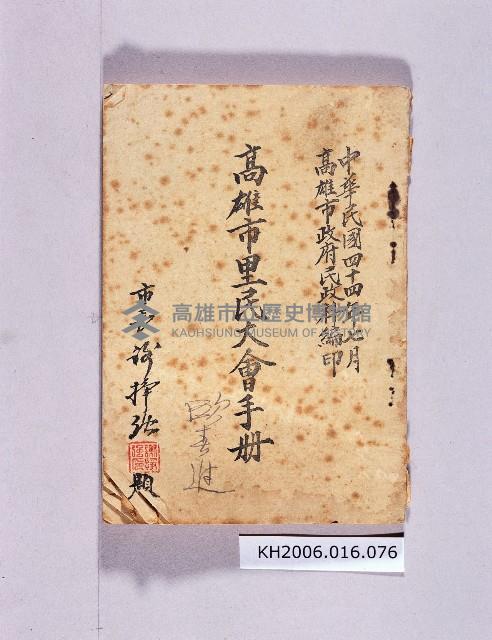 中華民國四十四年七月
高雄市政府民政科編印
高雄市里民大會手册
市長謝掙強題
高雄市立歷史博物館
KAOHSIUNG MUSEUM OF HISTORY
KH2006.016.076